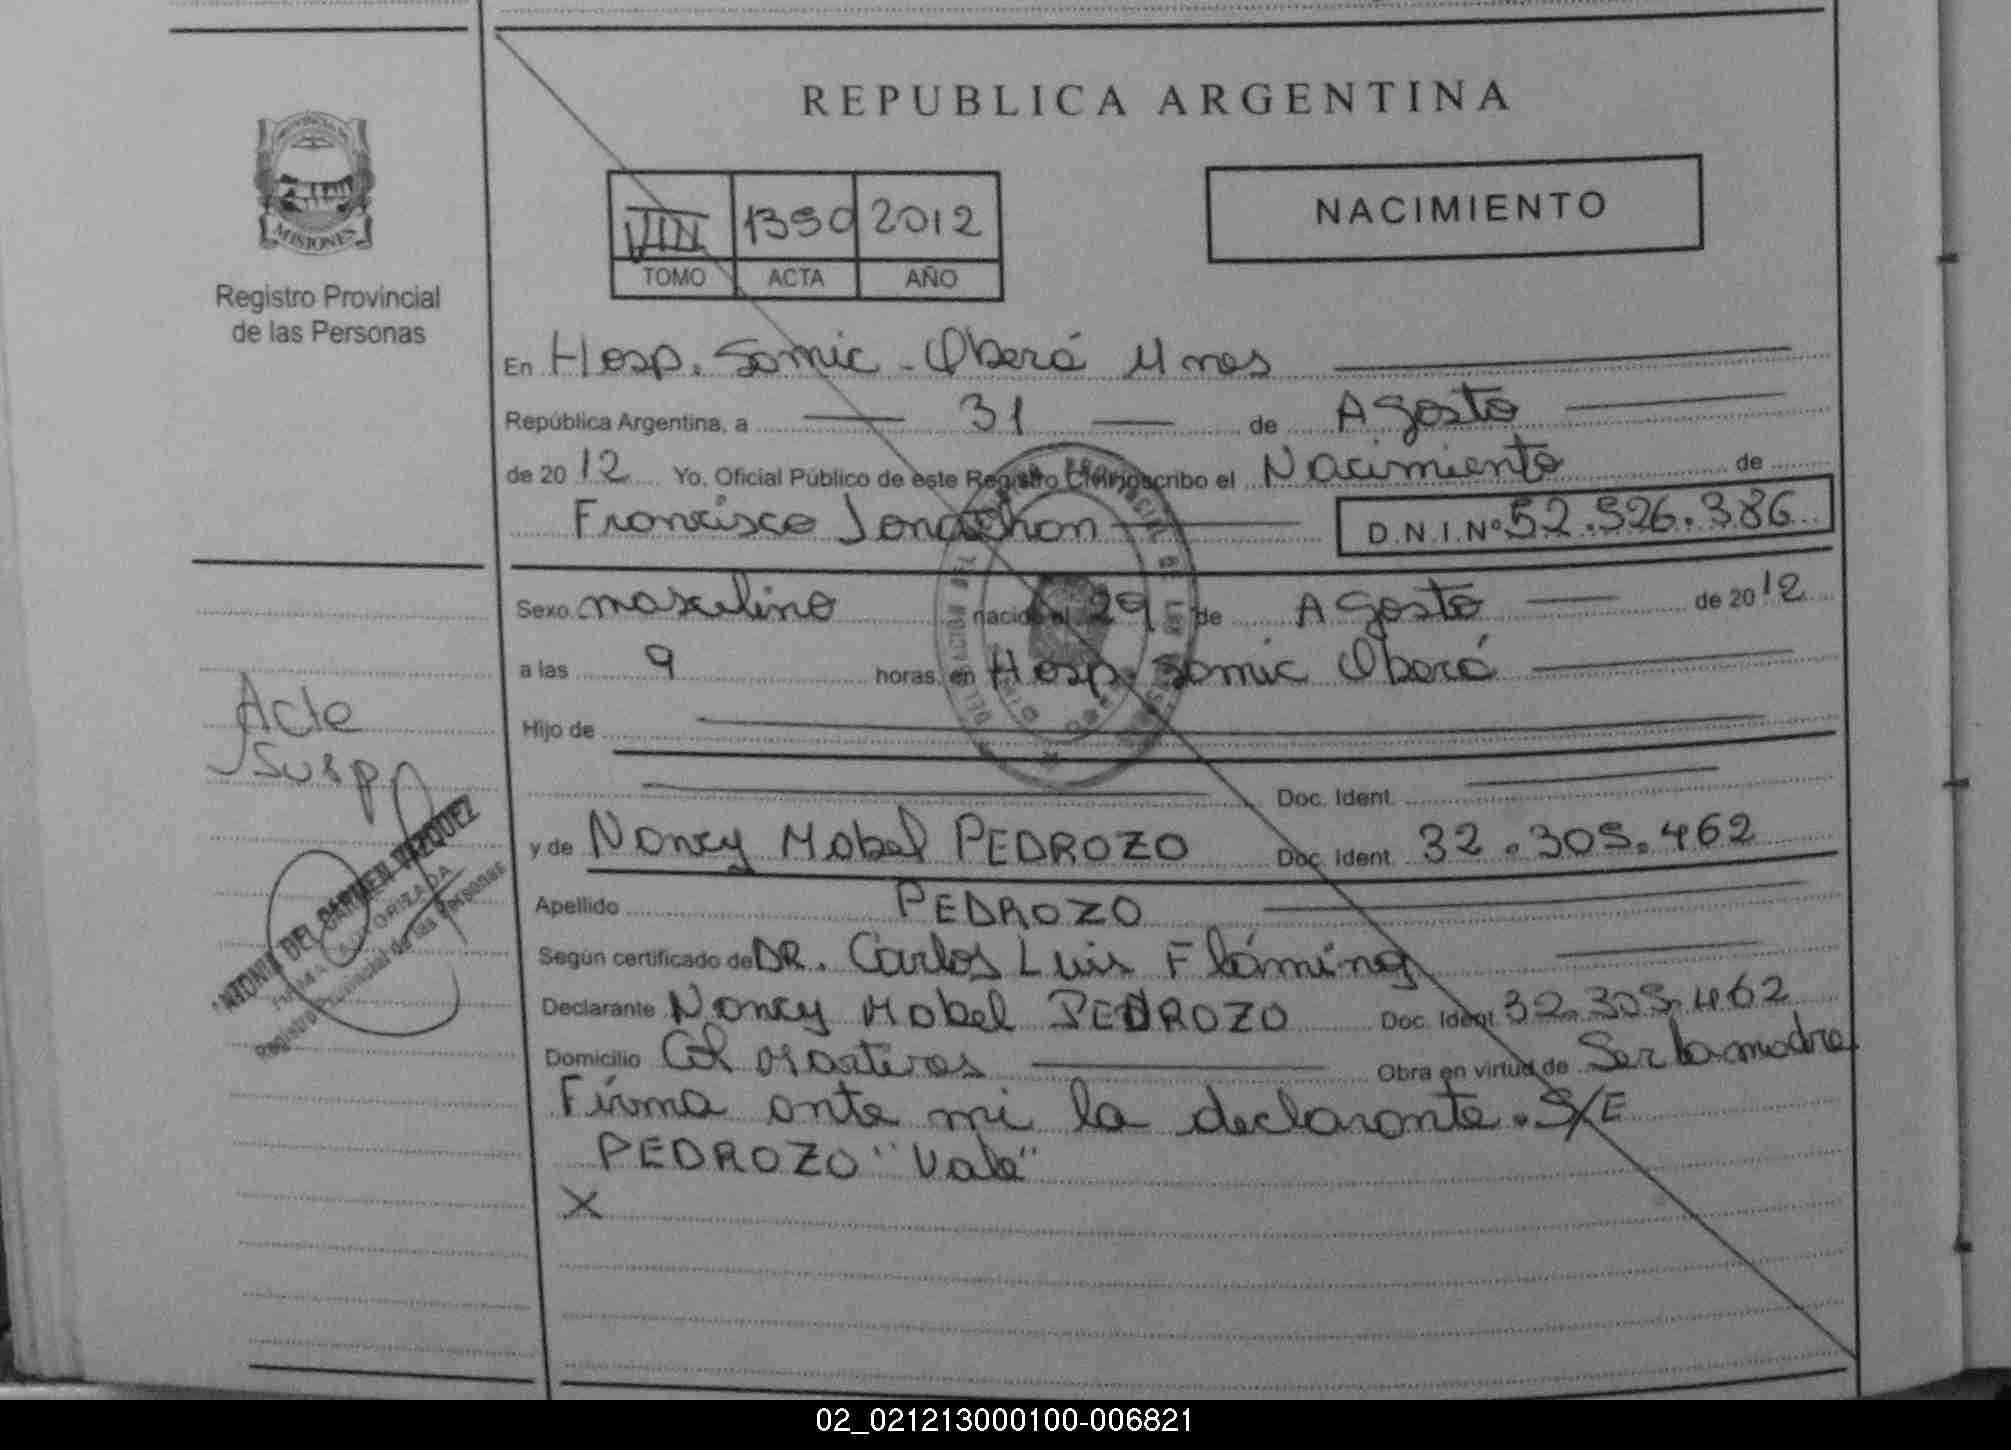 REPUBLICA ARGENTINA
PROVINCIA DE
MISIONES
Registro Provincial
de las Personas
VIII 1390 2012
TOMO ACTA AÑO
NACIMIENTO
En Hosp. Samic - Oberá Mnes
República Argentina, a 31 de Agosto
de 2012 Yo, Oficial Público de este Registro Civil inscribo el Nacimiento de
Francisco Jonathan D.N.I.Nº 52.526.386
Sexo masculino nacido el 29 de Agosto de 2012
a las 9 horas, en Hosp. Samic Oberá
Hijo de
Doc. Ident.
y de Nancy Mabel PEDROZO Doc. Ident. 32.305.462
Apellido PEDROZO
Según certificado de DR. Carlos Luis Fláming
Declarante Nancy Mabel PEDROZO Doc. Ident. 32.305.462
Domicilio Cnl Martires Obra en virtud de Ser la madre
Firma ante mi la declarante. S/E
PEDROZO "Vale"
X
Acta
Susp
ANTONIA DEL CARMEN VAZQUEZ
FIRMA AUTORIZADA
Registro Provincial de las Personas
02_021213000100-006821